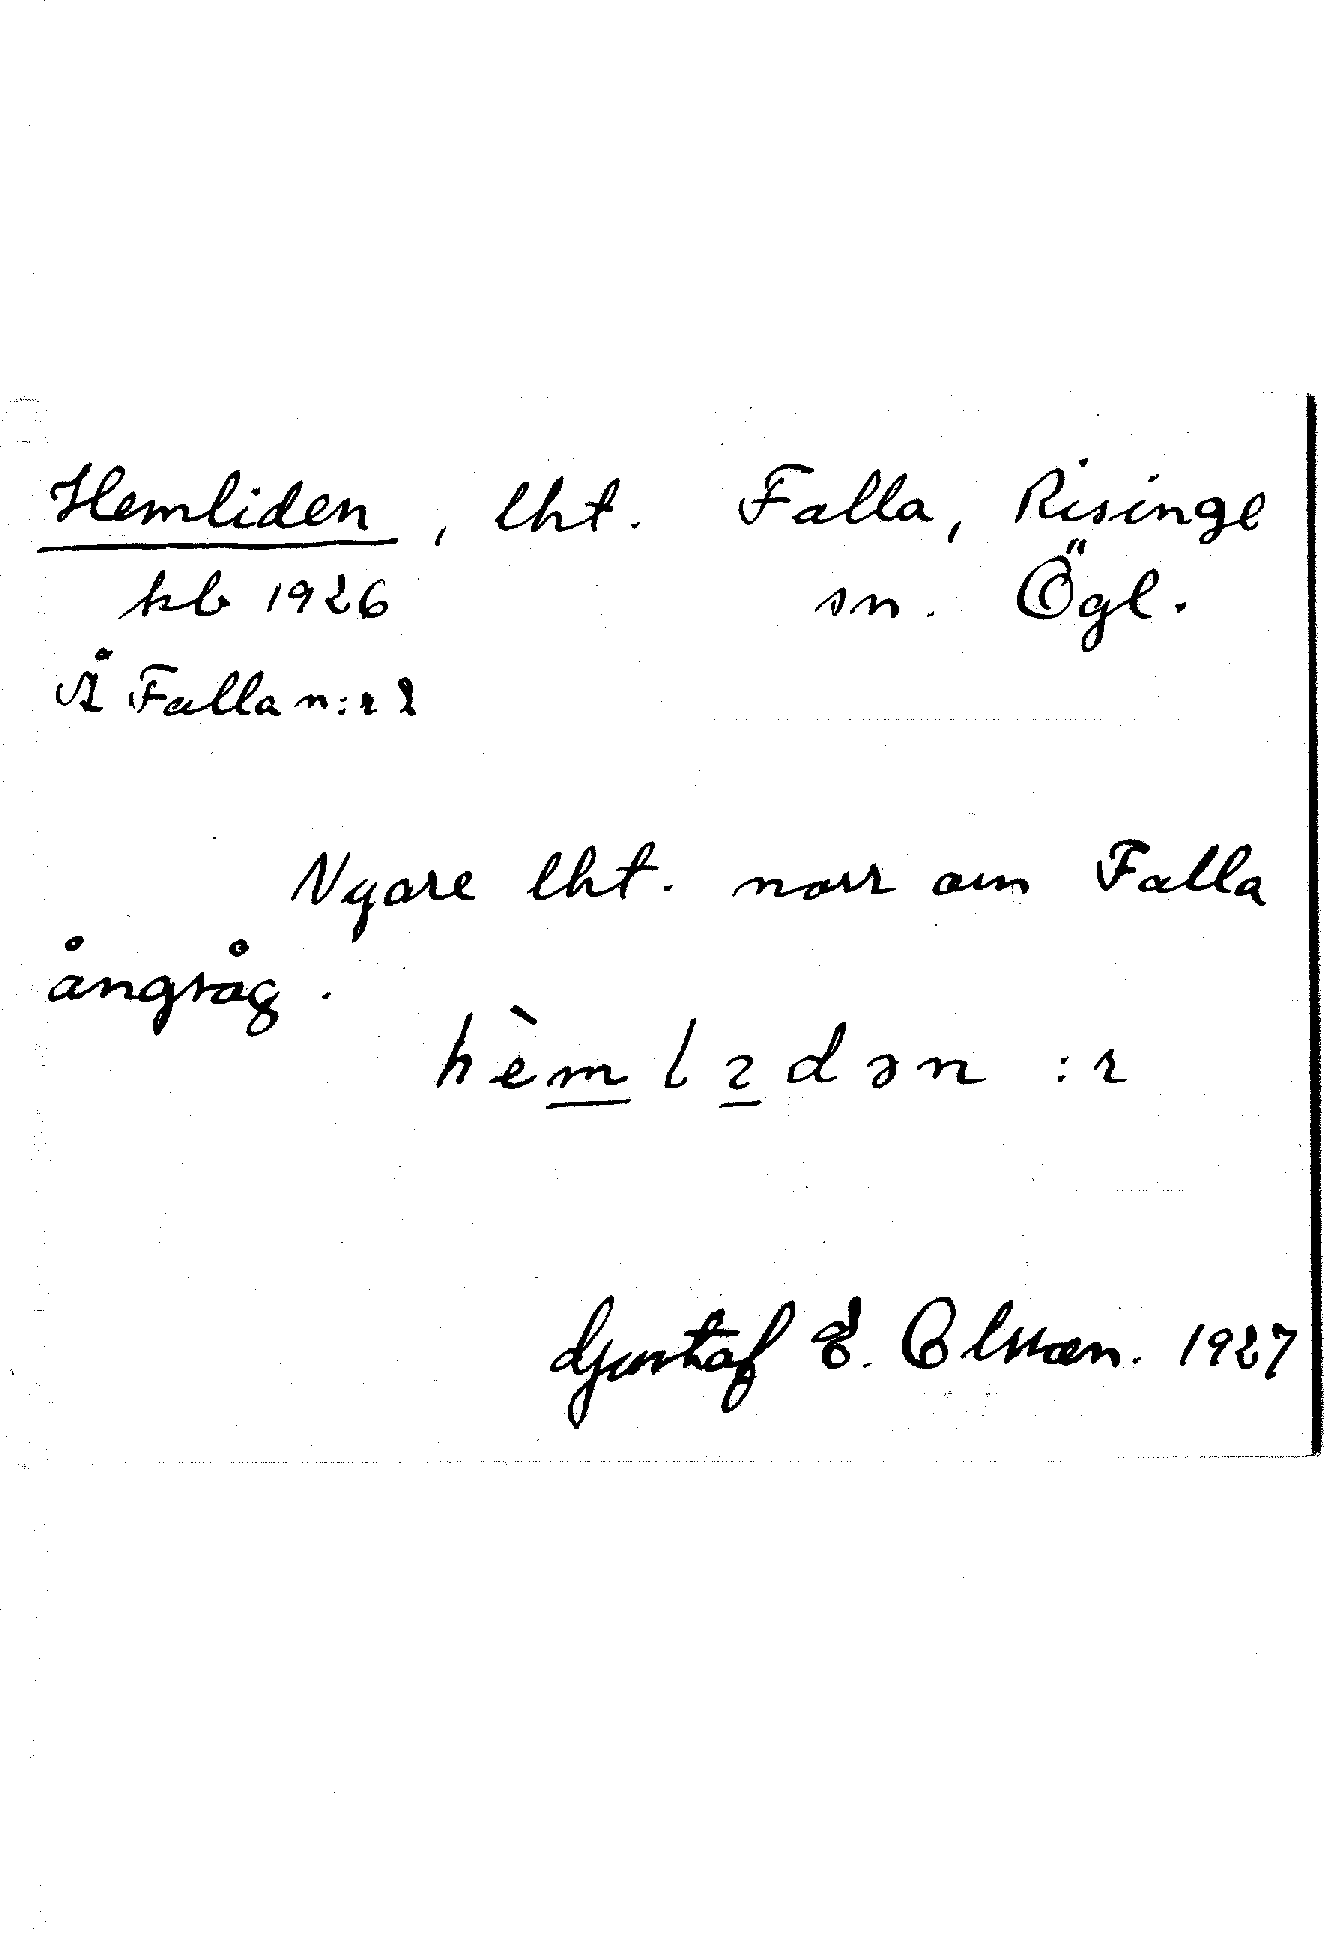 Hemliden, lht. Falla, Risinge
kb 1926 sn. Ögl.
Å Falla n:r 2
Nyare lht. norr om Falla
ångsåg.
hèmlɿdən :r
Gustaf E. Olsson. 1927